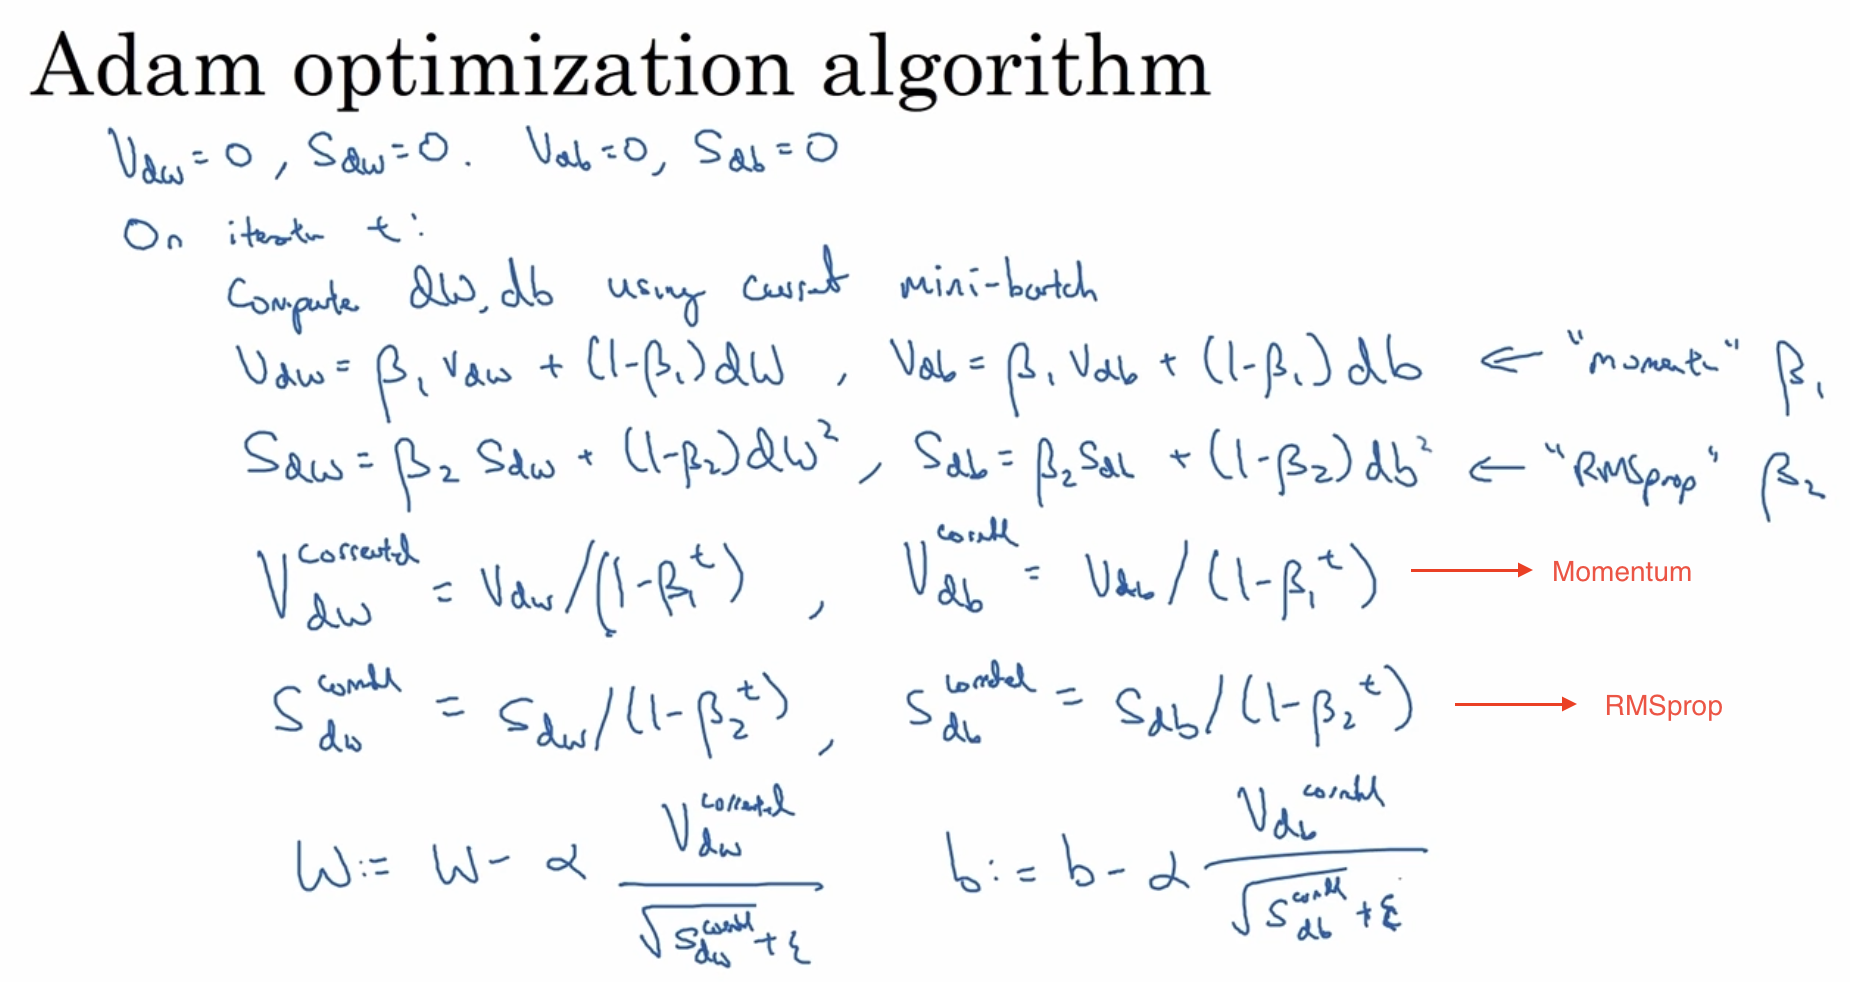 Adam optimization algorithm
V_dw = 0, S_dw = 0. V_db = 0, S_db = 0
On iteratn t:
Compute dW, db using current mini-batch
V_dw = β₁ V_dw + (1-β₁) dW, V_db = β₁ V_db + (1-β₁) db ← "momentu" β₁
S_dw = β₂ S_dw + (1-β₂) dW², S_db = β₂ S_db + (1-β₂) db² ← "RMSprop" β₂
V_dw^corrected = V_dw/(1-β₁^t), V_db^corrected = V_db/(1-β₁^t) → Momentum
S_dw^corrected = S_dw/(1-β₂^t), S_db^corrected = S_db/(1-β₂^t) → RMSprop
W := W - α V_dw^corrected / (√S_dw^corrected + ε) b := b - α V_db^corrected / (√S_db^corrected + ε)